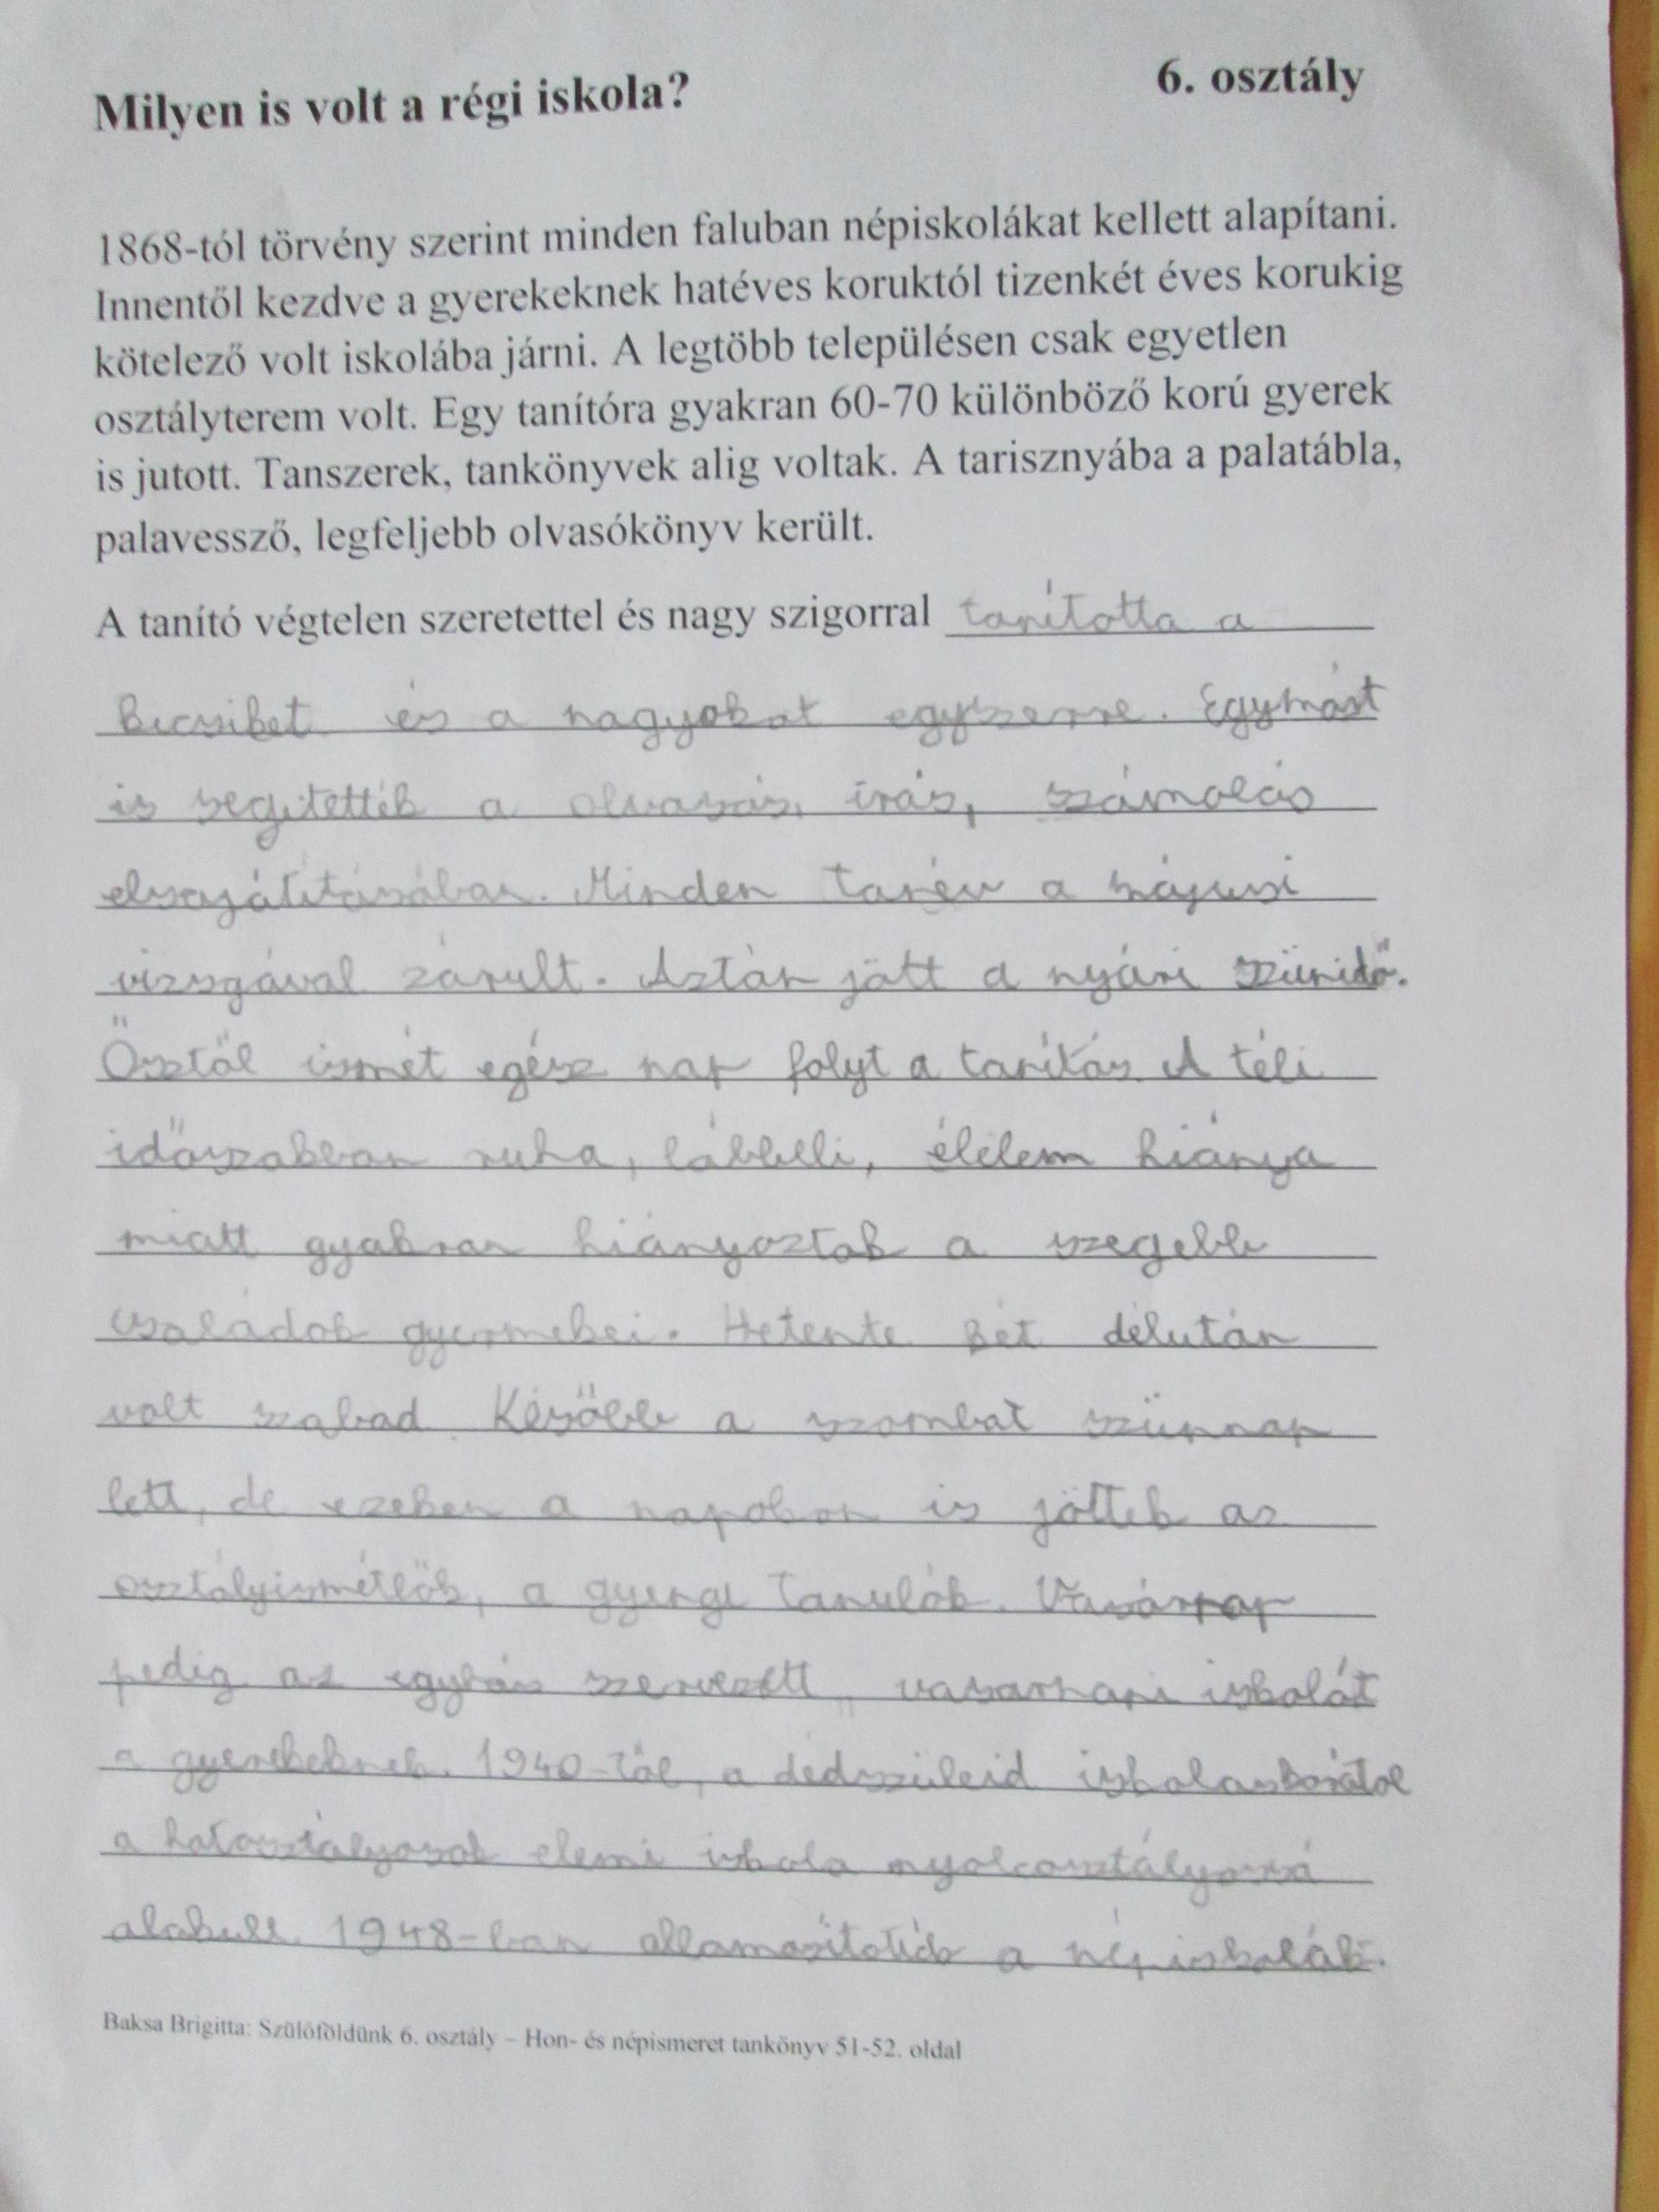 Milyen is volt a régi iskola? 6. osztály
1868-tól törvény szerint minden faluban népiskolákat kellett alapítani.
Innentől kezdve a gyerekeknek hatéves koruktól tizenkét éves korukig
kötelező volt iskolába járni. A legtöbb településen csak egyetlen
osztályterem volt. Egy tanítóra gyakran 60-70 különböző korú gyerek
is jutott. Tanszerek, tankönyvek alig voltak. A tarisznyába a palatábla,
palavessző, legfeljebb olvasókönyv került.
A tanító végtelen szeretettel és nagy szigorral tanította a
kicsiket és a nagyokat egyszerre. Egymást
is segítették a olvasás, írás, számolás
elsajátításában. Minden tanév a májusi
vizsgával zárult. Aztán jött a nyári szünidő.
Ősztől ismét egész nap folyt a tanítás. A téli
időszakban ruha, lábbeli, élelem hiánya
miatt gyakran hiányoztak a szegebb
családok gyermekei. Hetente két délután
volt szabad. Később a szombat szünnap
lett, de ezeken a napokon is jöttek az
osztályismétlők, a gyenge tanulók. Vasárnap
pedig az egyház szervezett „vasárnapi iskolát
a gyerekeknek. 1940-től, a dédszüleid iskolaskorától
a hatosztályosok elemi iskola nyolcosztályossá
alakult. 1948-ban államosították a népiskolák.
Baksa Brigitta: Szülőföldünk 6. osztály – Hon- és népismeret tankönyv 51-52. oldal